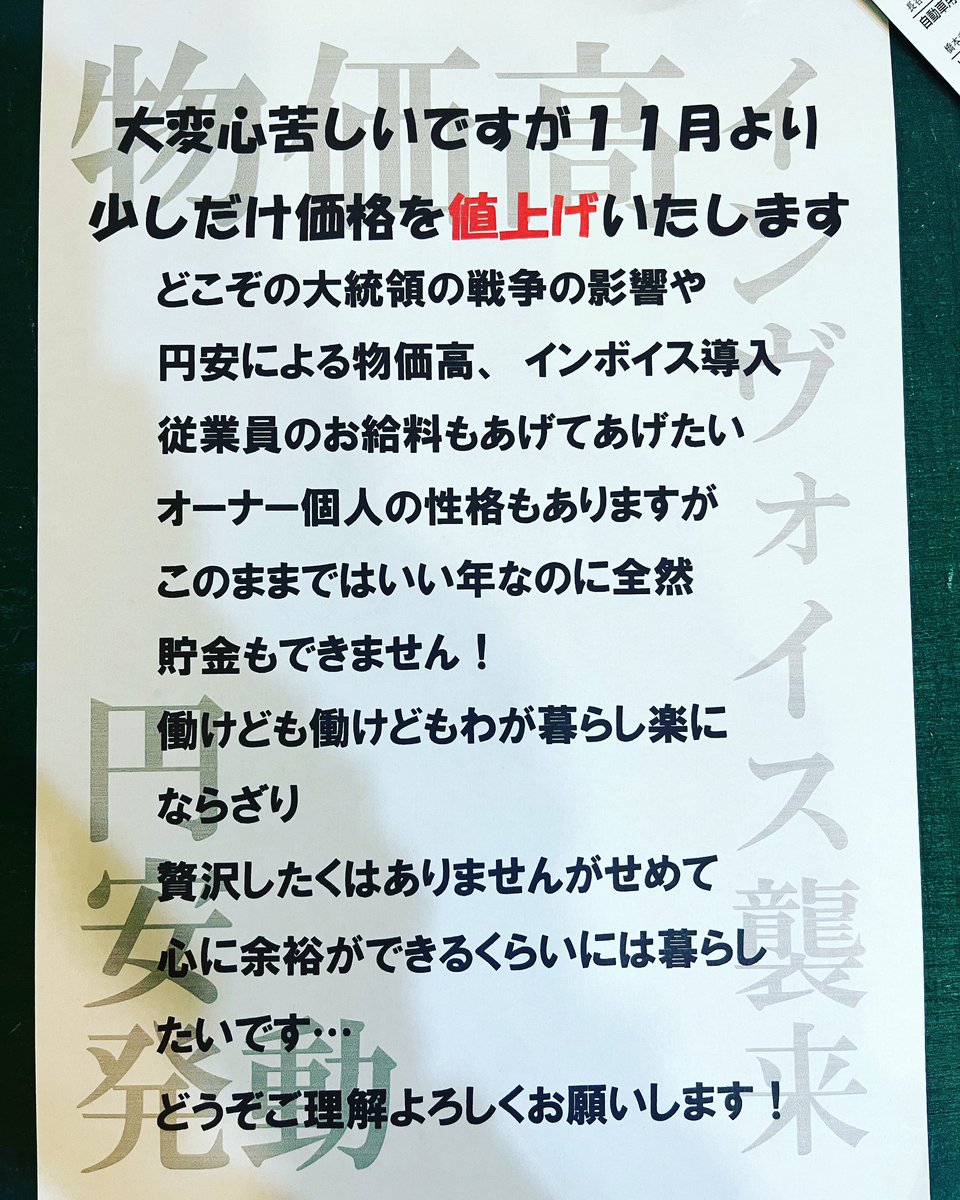 大変心苦しいですが１１月より
少しだけ価格を値上げいたします
どこぞの大統領の戦争の影響や
円安による物価高、インボイス導入
従業員のお給料もあげてあげたい
オーナー個人の性格もありますが
このままではいい年なのに全然
貯金もできません！
働けども働けどもわが暮らし楽に
ならざり
贅沢したくはありませんがせめて
心に余裕ができるくらいには暮らし
たいです…
どうぞご理解よろしくお願いします！
物価高
インヴォイス襲来
円安
発動
自動車用